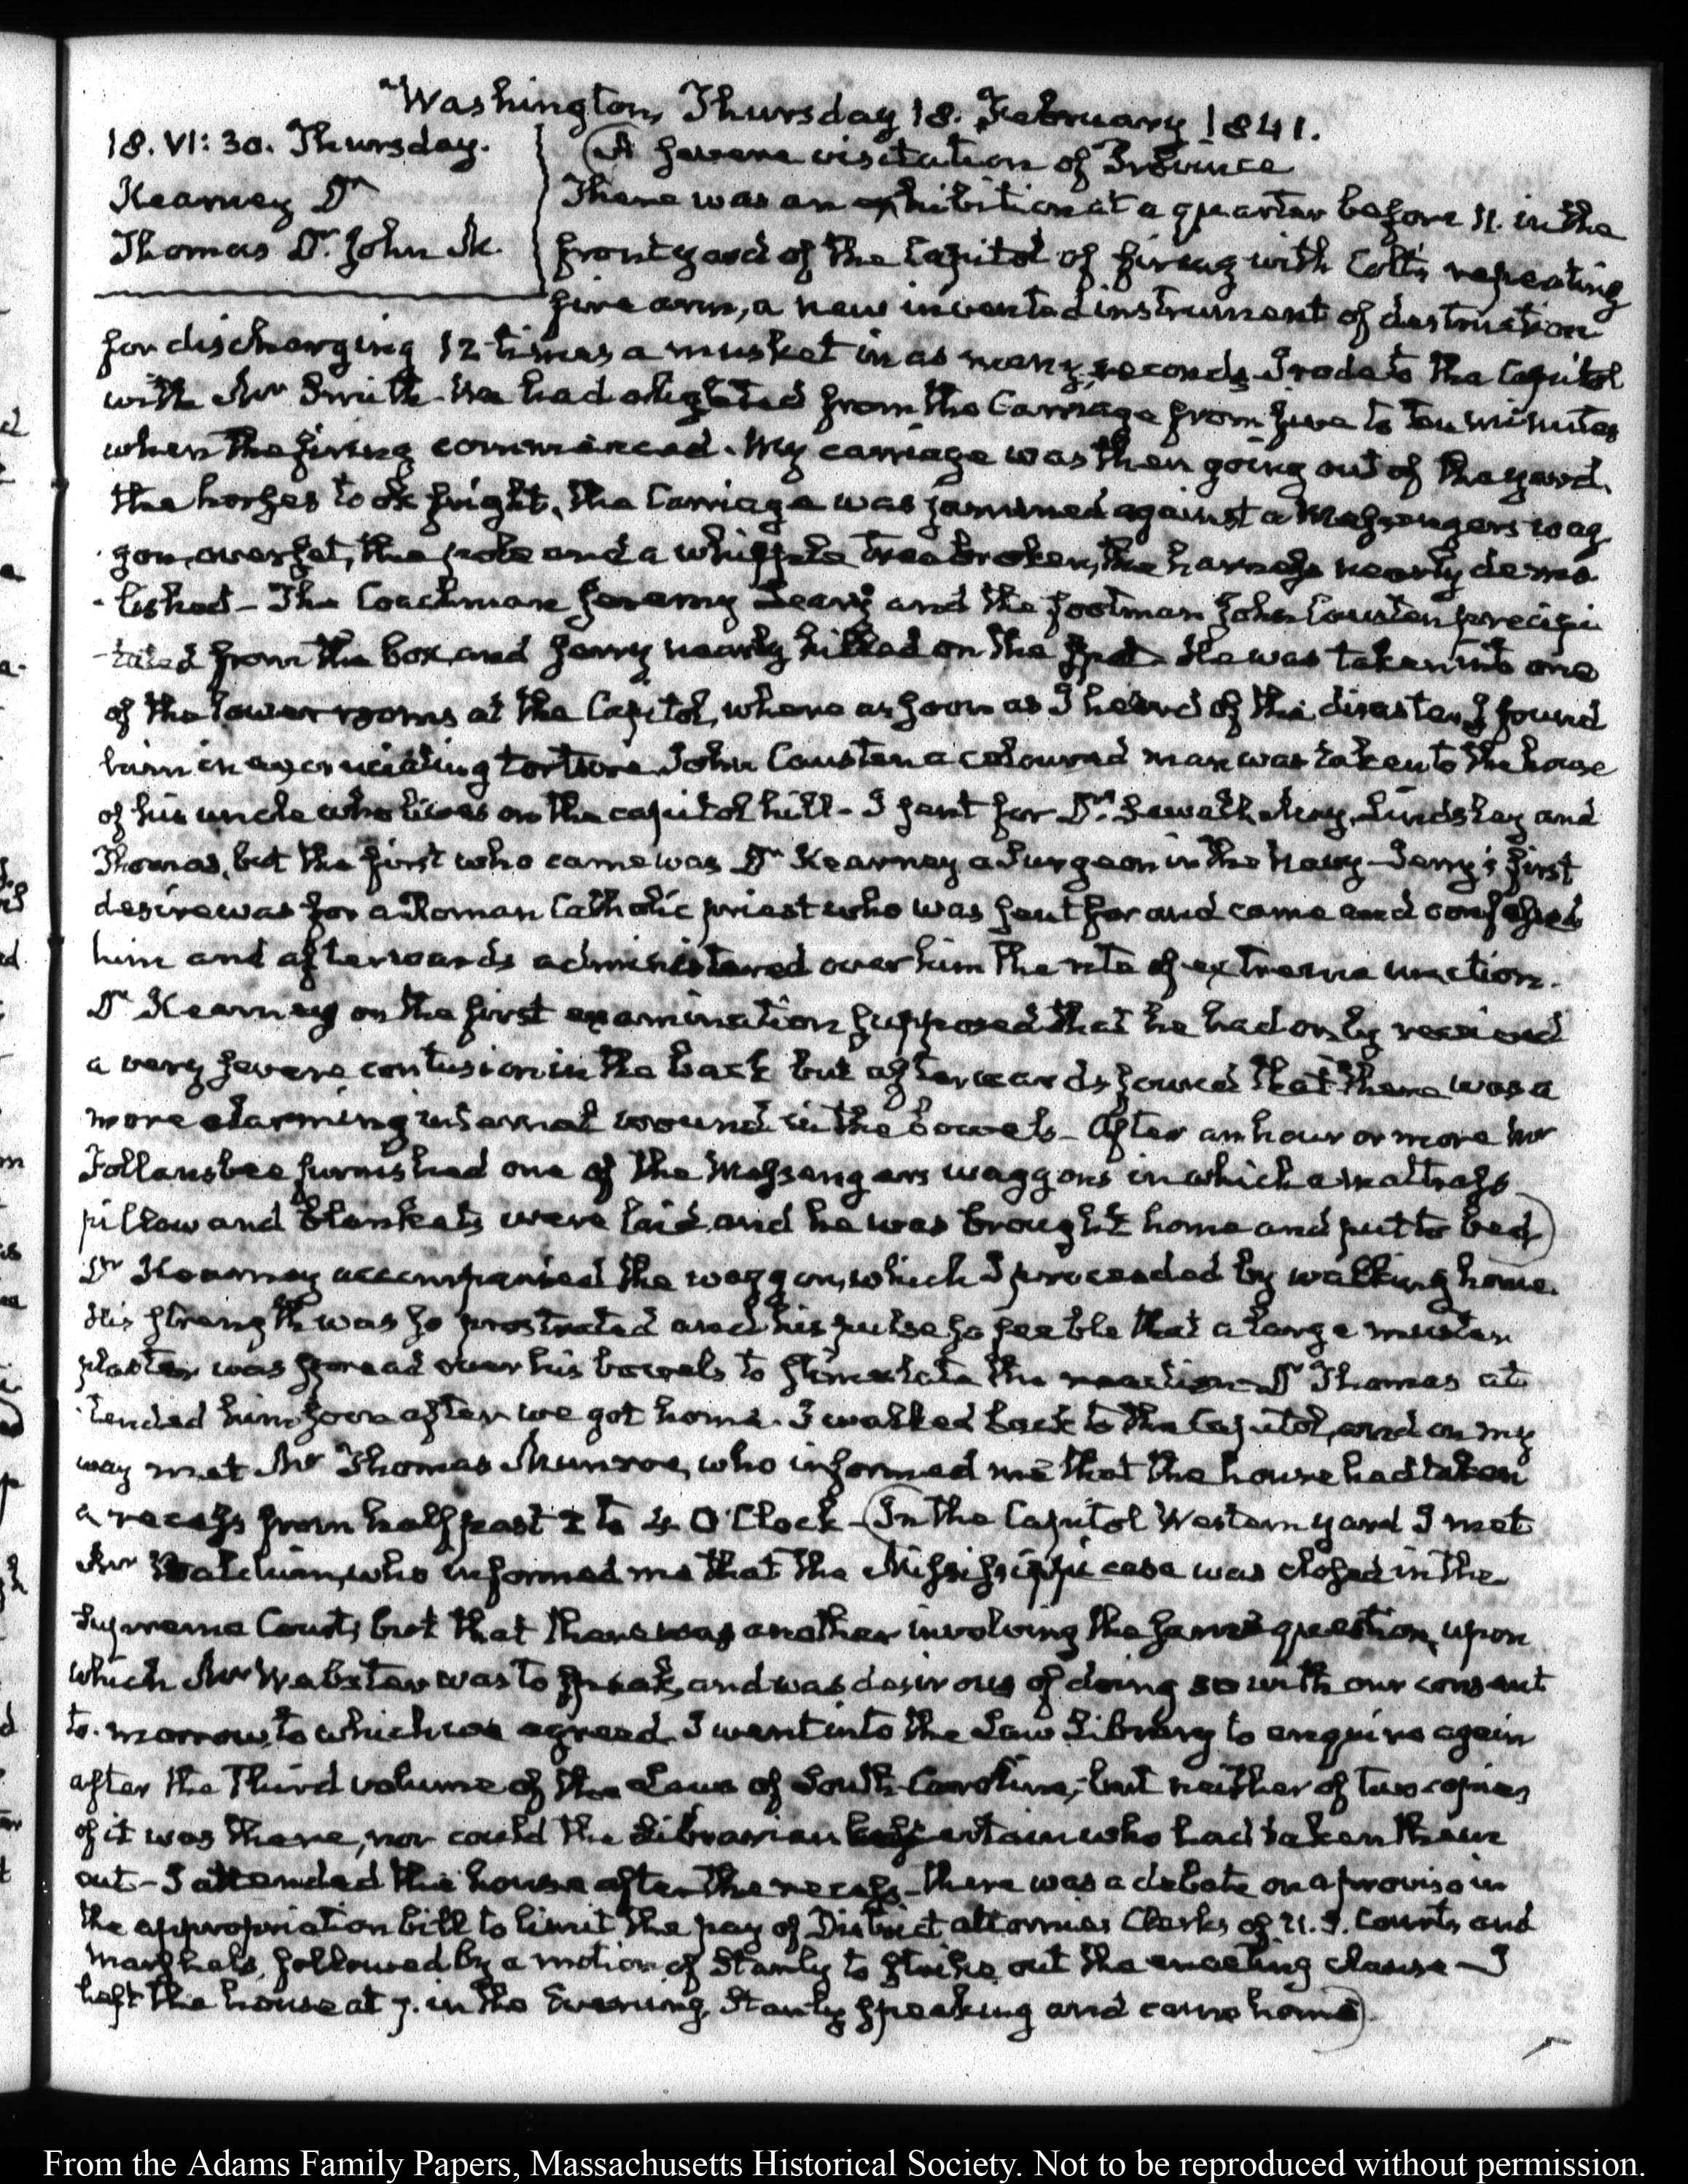 Washington, Thursday 18. February 1841.
18. VI: 30. Thursday.
Kearney Dr
Thomas Dr. John M.
A severe visitation of Province
There was an exhibition at a quarter before 11. in the
front yard of the Capitol of firing with Colt's repeating
fire arm, a new invented instrument of destruction
for discharging 12 times a musket in as many seconds I rode to the Capitol
with Mr Smith. We had alighted from the Carriage from five to ten minutes
when the firing commenced. My carriage was then going out of the yard.
the horses took fright, the Carriage was jammed against a Messengers wag
gon, overset, the pole and a whipple tree broken, the harness nearly demo
-lished - The Coachman Jeremy Leary and the footman John Causten precipi
-tated from the box, and Jerry nearly killed on the spot. He was taken into one
of the lower rooms at the Capitol, where as soon as I heard of the disaster I found
him in excruciating torture. John Causten a coloured man was taken to the house
of his uncle who lives on the capitol hill - I sent for Drs. Sewall, May, Lindsley and
Thomas, but the first who came was Dr Kearney a Surgeon in the Navy - Jerry's first
desire was for a Roman Catholic priest who was sent for and came and confessed
him and afterwards administered over him the rite of extreme unction.
Dr Kearney on the first examination supposed that he had only received
a very severe contusion in the back but afterwards found that there was a
more alarming internal wound in the bowels - After an hour or more Mr
Follansbee furnished one of the Messengers waggons in which a mattrass
pillow and blankets were laid, and he was brought home and put to bed
Dr Kearney accompanied the waggon, which I preceded by walking home.
His strength was so prostrated and his pulse so feeble that a large mustard
plaster was spread over his bowels to stimulate the reaction - Dr Thomas at
tended him soon after we got home. I walked back to the Capitol, and on my
way met Mr Thomas Munroe, who informed me that the house had taken
a recess from half past 2 to 4 O'Clock - In the Capitol Western yard I met
Mr Baldwin, who informed me that the Mississippi case was closed in the
Supreme Court, but that there was another involving the same question, upon
which Mr Webster was to speak, and was desirous of doing so with our consent
to-morrow, to which we agreed. I went into the Law Library to enquire again
after the Third volume of the Laws of South-Carolina; but neither of two copies
of it was there, nor could the Librarian ascertain who had taken them
out - I attended the house after the recess - there was a debate on a proviso in
the appropriation bill to limit the pay of District attornies Clerks of U.S. Courts and
Marshals, followed by a motion of Stanly to strike out the enacting clause - I
left the house at 7. in the Evening, Stanly speaking and came home
From the Adams Family Papers, Massachusetts Historical Society. Not to be reproduced without permission.